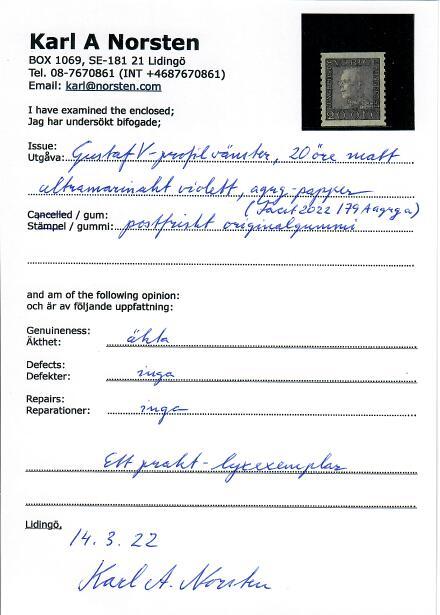 Karl A Norsten
BOX 1069, SE-181 21 Lidingö
Tel. 08-7670861 (INT +4687670861)
Email: karl@norsten.com
I have examined the enclosed;
Jag har undersökt bifogade;
Issue:
Utgåva: Gustaf V - profil vänster, 20 öre matt
ultramarinakt violett, agrg-papper
(Facit 2022 179A agrg a)
Cancelled / gum:
Stämpel / gummi: postfriskt originalgummi
and am of the following opinion:
och är av följande uppfattning:
Genuineness:
Äkthet: äkta
Defects:
Defekter: inga
Repairs:
Reparationer: inga
Ett prakt-lyxexemplar
Lidingö,
14. 3. 22
Karl A. Norsten